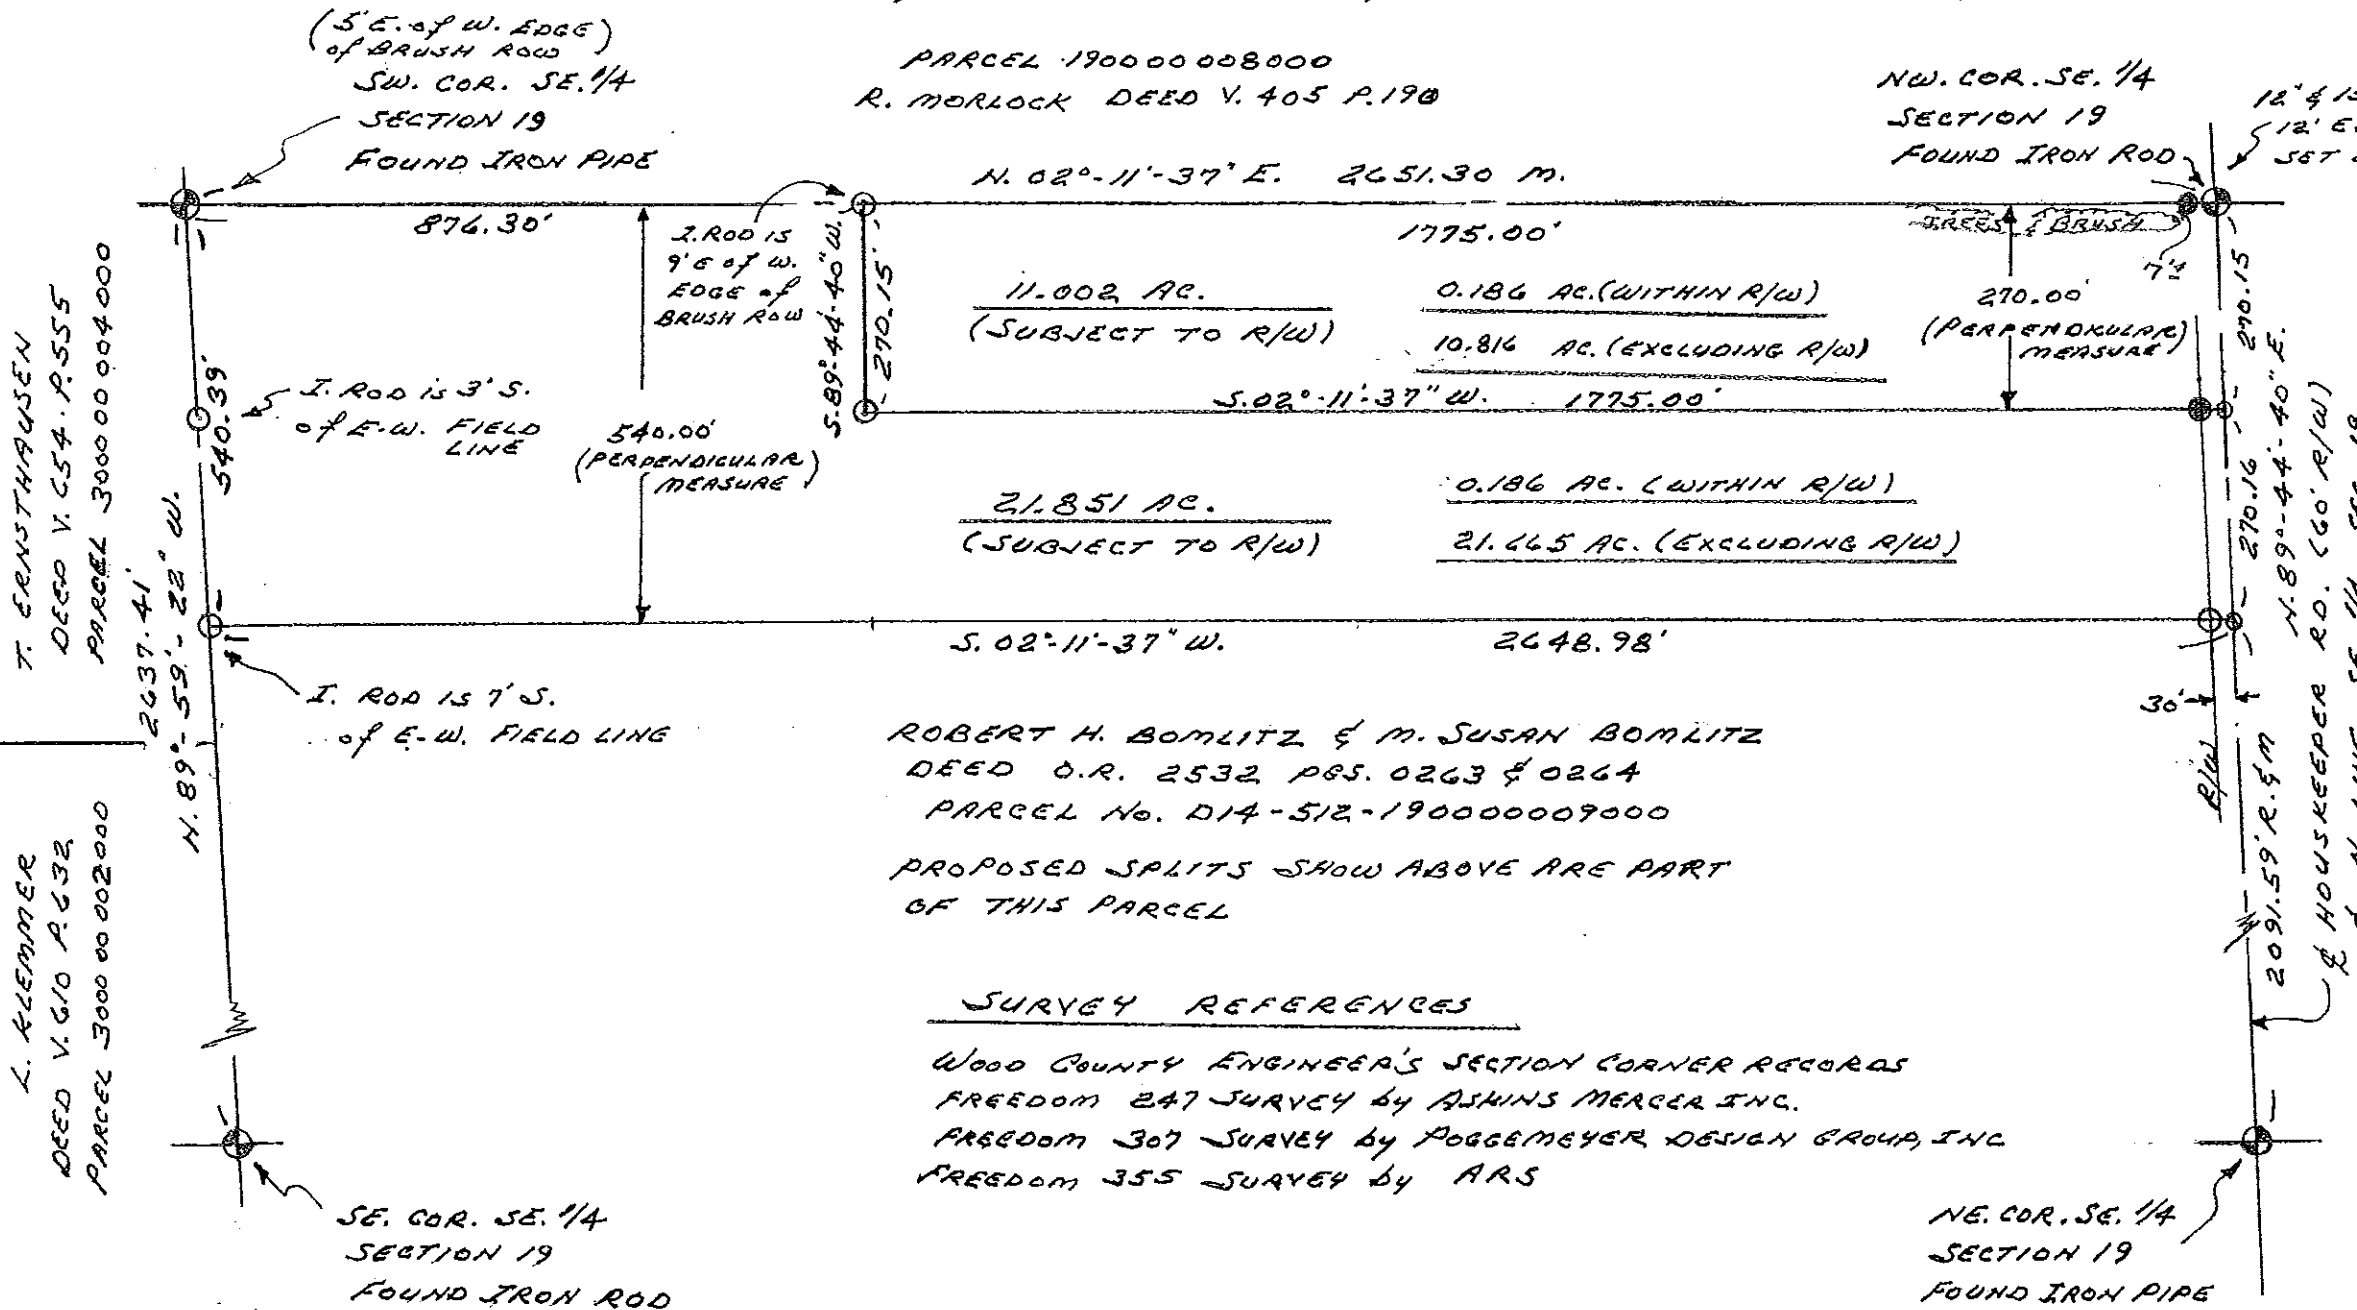 (5' E. of W. EDGE)
of BRUSH ROW
SW. COR. SE. 1/4
SECTION 19
FOUND IRON PIPE
PARCEL 190000008000
R. MORLOCK DEED V. 405 P. 190
NW. COR. SE. 1/4
SECTION 19
FOUND IRON ROD
12" & 15
12' E.
SET
N. 02°-11'-37" E. 2651.30 M.
876.30'
1775.00'
TREES & BRUSH
7'±
I. ROD IS
9' E of W.
EDGE of
BRUSH ROW
S. 89°-44'-40" W.
270.15'
11.002 AC.
(SUBJECT TO R/W)
0.186 AC. (WITHIN R/W)
10.816 AC. (EXCLUDING R/W)
270.00'
(PERPENDICULAR)
MEASURE
270.15
S. 02°-11'-37" W. 1775.00'
T. ERNSTHAUSEN
DEED V. 654 P. 555
PARCEL 300000004000
540.39'
I. ROD is 3' S.
of E-W. FIELD
LINE
540.00'
(PERPENDICULAR)
MEASURE
21.851 AC.
(SUBJECT TO R/W)
0.186 AC. (WITHIN R/W)
21.665 AC. (EXCLUDING R/W)
270.16
N. 89°-44'-40" E.
S. 02°-11'-37" W. 2648.98'
2637.41'
N. 89°-59'-22" W.
I. ROD IS 7' S.
of E-W. FIELD LINE
30'
R/W
2091.59' R. & M
℄ HOUSKEEPER RD. (60' R/W)
& N. LINE SE 1/4 SEC. 19
ROBERT H. BOMLITZ & M. SUSAN BOMLITZ
DEED O.R. 2532 PGS. 0263 & 0264
PARCEL No. D14-512-190000009000
PROPOSED SPLITS SHOW ABOVE ARE PART
OF THIS PARCEL
L. KLEMMER
DEED V. 610 P. 632
PARCEL 300000002000
SURVEY REFERENCES
WOOD COUNTY ENGINEER'S SECTION CORNER RECORDS
FREEDOM 247 SURVEY by ASKINS MERCER INC.
FREEDOM 307 SURVEY by POGGEMEYER DESIGN GROUP, INC
FREEDOM 355 SURVEY by ARS
SE. COR. SE. 1/4
SECTION 19
FOUND IRON ROD
NE. COR. SE. 1/4
SECTION 19
FOUND IRON PIPE